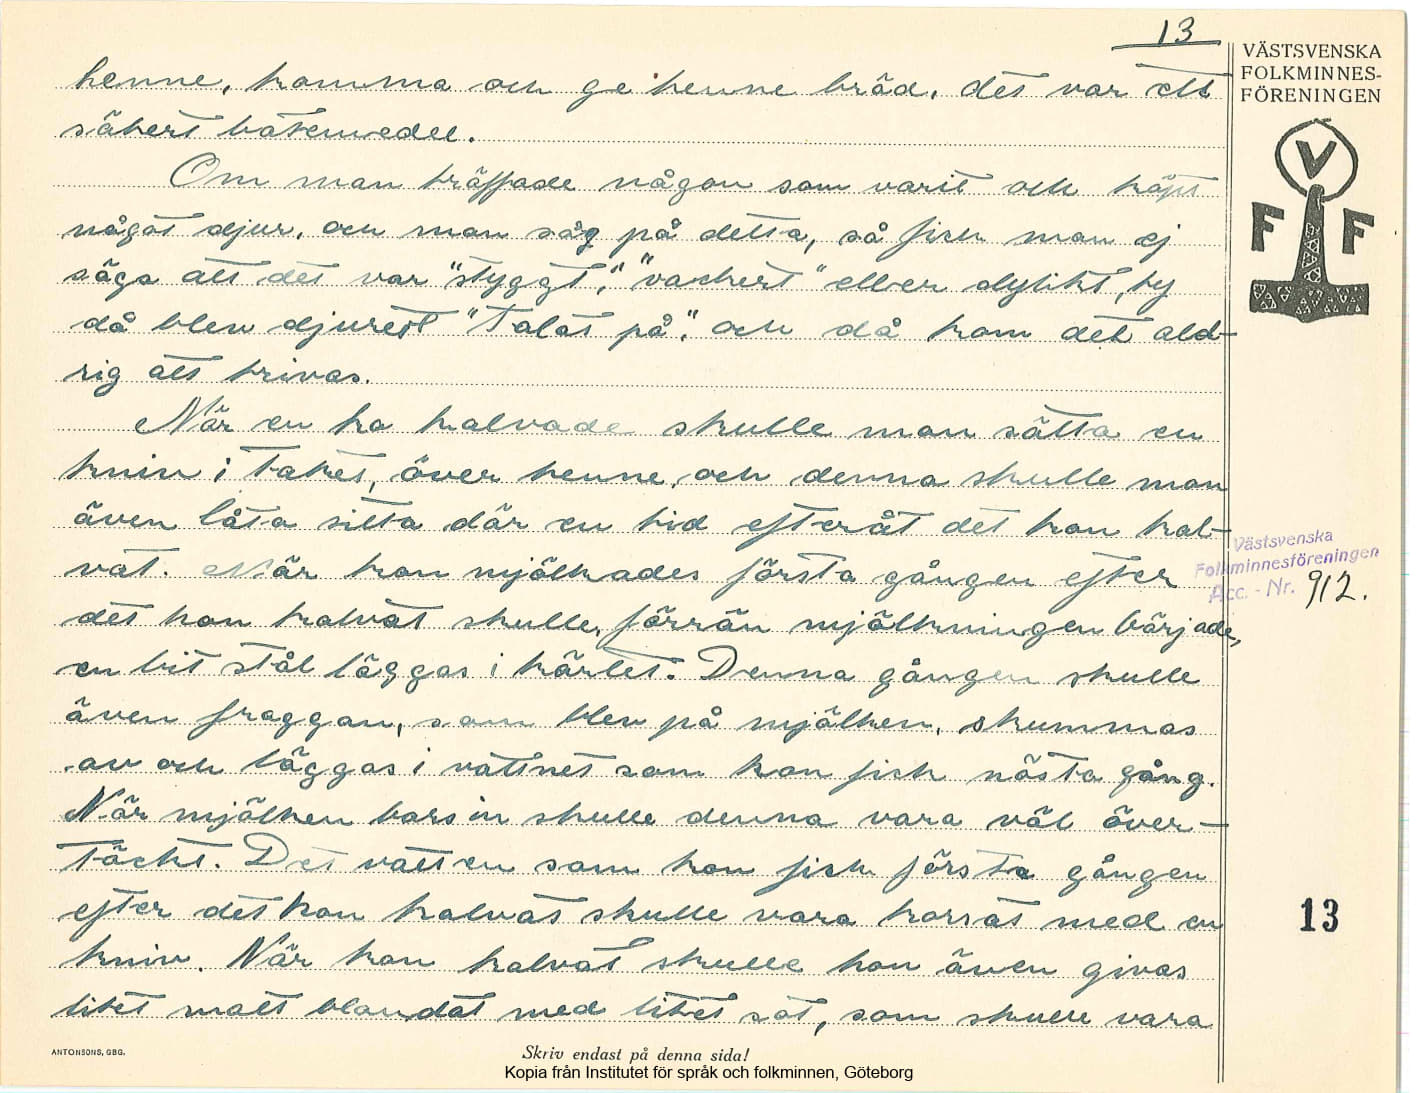 13
VÄSTSVENSKA
FOLKMINNES-
FÖRENINGEN
V
F F
henne, komma och ge henne bröd, det var ett
säkert botemedel.
Om man träffade någon som varit och köpt
något djur, och man såg på detta, så fick man ej
säga att det var "styggt", "vackert" eller dylikt, ty
då blev djuret "talat på", och då kom det ald-
rig att trivas.
När en ko kalvade skulle man sätta en
kniv i taket, över henne, och denna skulle man
även låta sitta där en tid efteråt det kon kal-
vat. När kon mjölkades första gången efter
det kon kalvat skulle, förrän mjölkningen började,
en bit stål läggas i kärlet. Denna gången skulle
även fraggan, som blev på mjölken, skummas
av och läggas i vattnet som kon fick nästa gång.
När mjölken bars in skulle denna vara väl över-
täckt. Det vatten som kon fick första gången
efter det kon kalvat skulle vara korsat med en
kniv. När kon kalvat skulle hon även givas
litet malt blandat med litet sot, som skulle vara
Västsvenska
Folkminnesföreningen
Acc. - Nr. 912.
13
ANTONSONS, GBG.
Skriv endast på denna sida!
Kopia från Institutet för språk och folkminnen, Göteborg